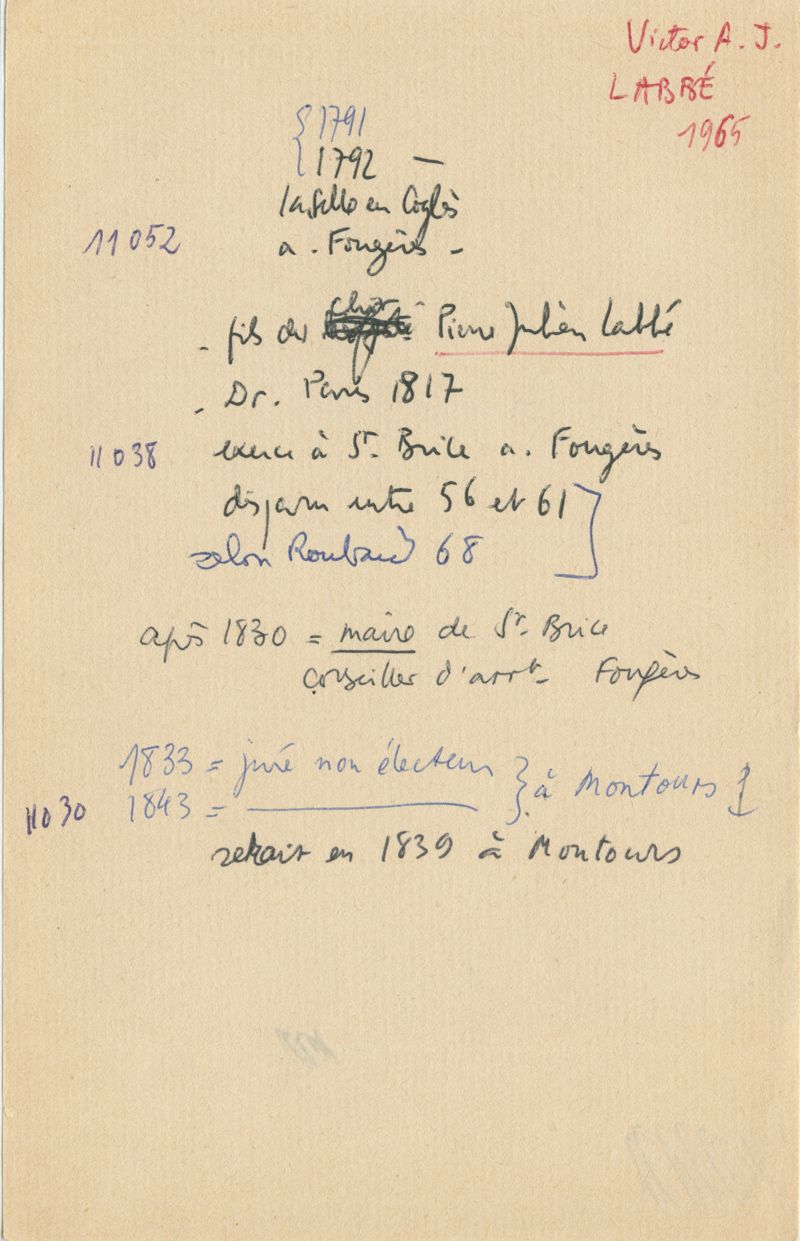 Victor A. J.
LABBÉ
1965
{ 1791
{ 1792 —
la Selle en Coglès
11052 a. Fougères -
- fils du chir Pierre Julien Labbé
- Dr. Paris 1817
11038 exerce à St. Brice a. Fougères
disparu entre 56 et 61 ]
selon Roubaud 68
après 1830 = maire de St. Brice
conseiller d'arrt - Fougères
1833 = juré non électeur } à Montours
11030 1843 = ———
serait en 1839 à Montours